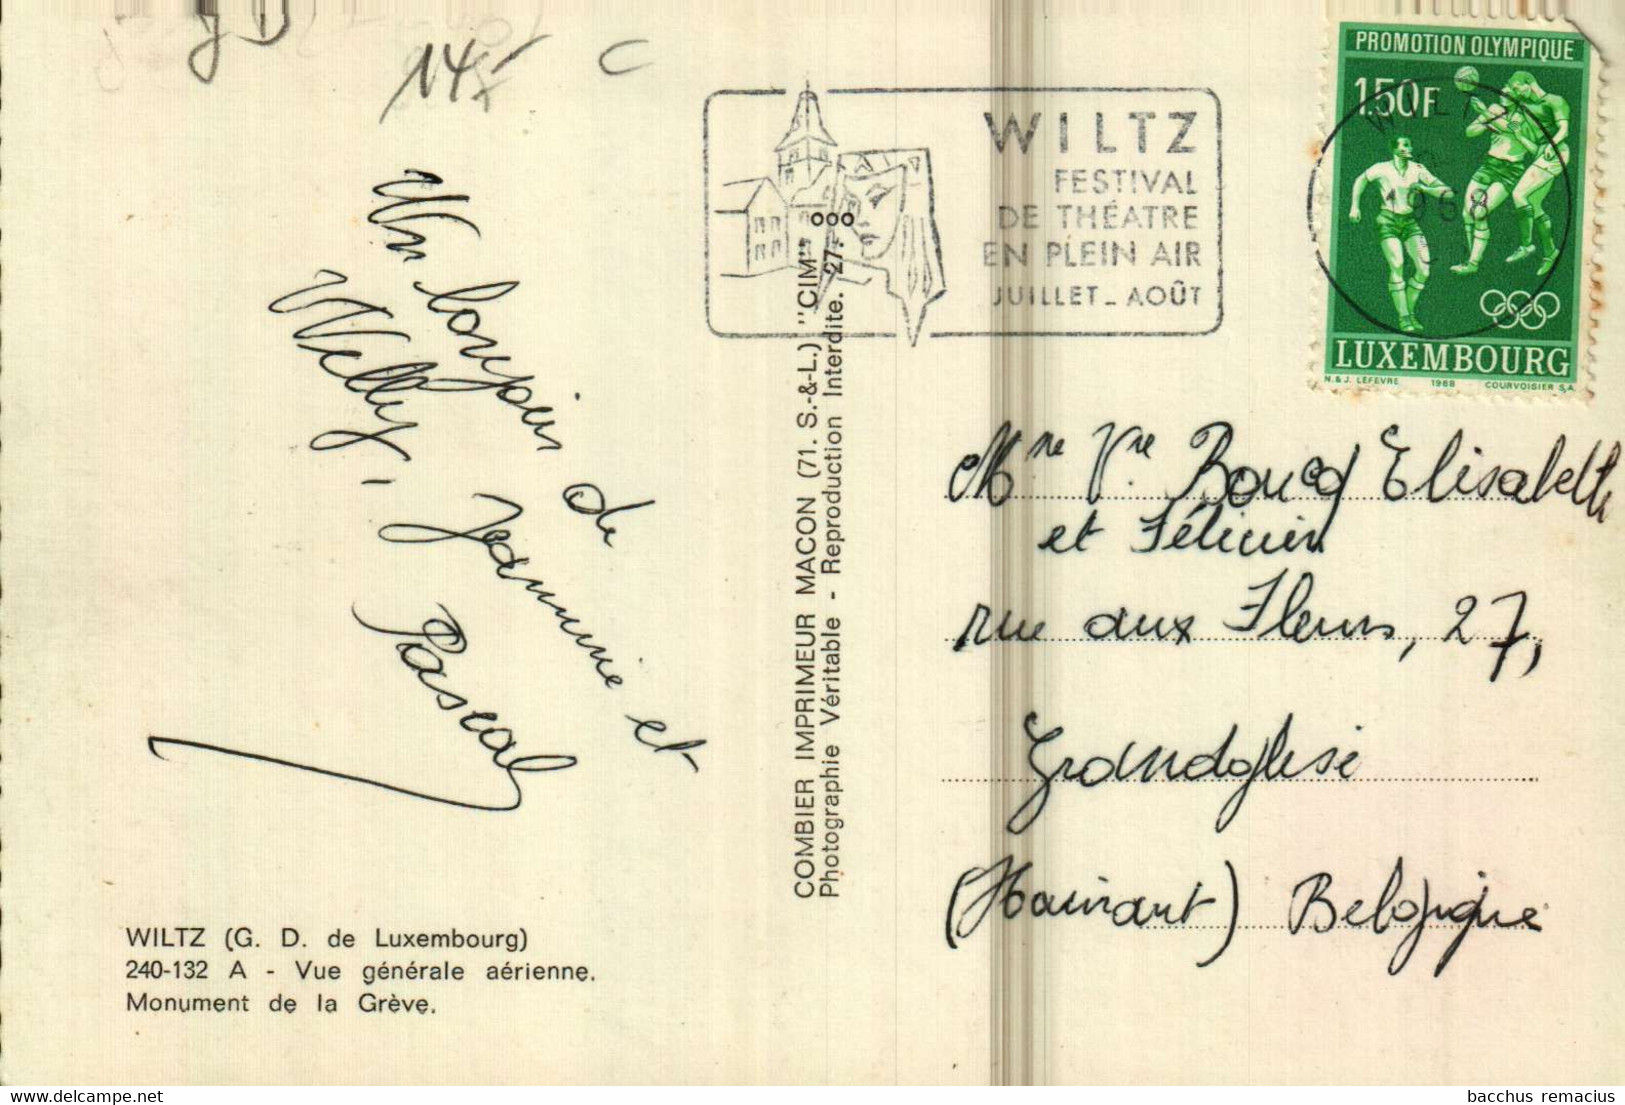 14
C
WILTZ
FESTIVAL
DE THÉATRE
EN PLEIN AIR
JUILLET - AOÛT
PROMOTION OLYMPIQUE
1.50F
WILTZ
1968
LUXEMBOURG
N. & J. LEFEVRE 1968 COURVOISIER S.A.
Un bonjour de
Willy, Jeannine et
Pascal
COMBIER IMPRIMEUR MACON (71. S.-&-L.) "CIM"
Photographie Véritable - Reproduction Interdite. 27.
Mme Vve Boucq Elisabeth
et Félicien
rue aux Fleurs, 27,
Grandglise
(Hainaut) Belgique
WILTZ (G. D. de Luxembourg)
240-132 A - Vue générale aérienne.
Monument de la Grève.
bacchus remacius